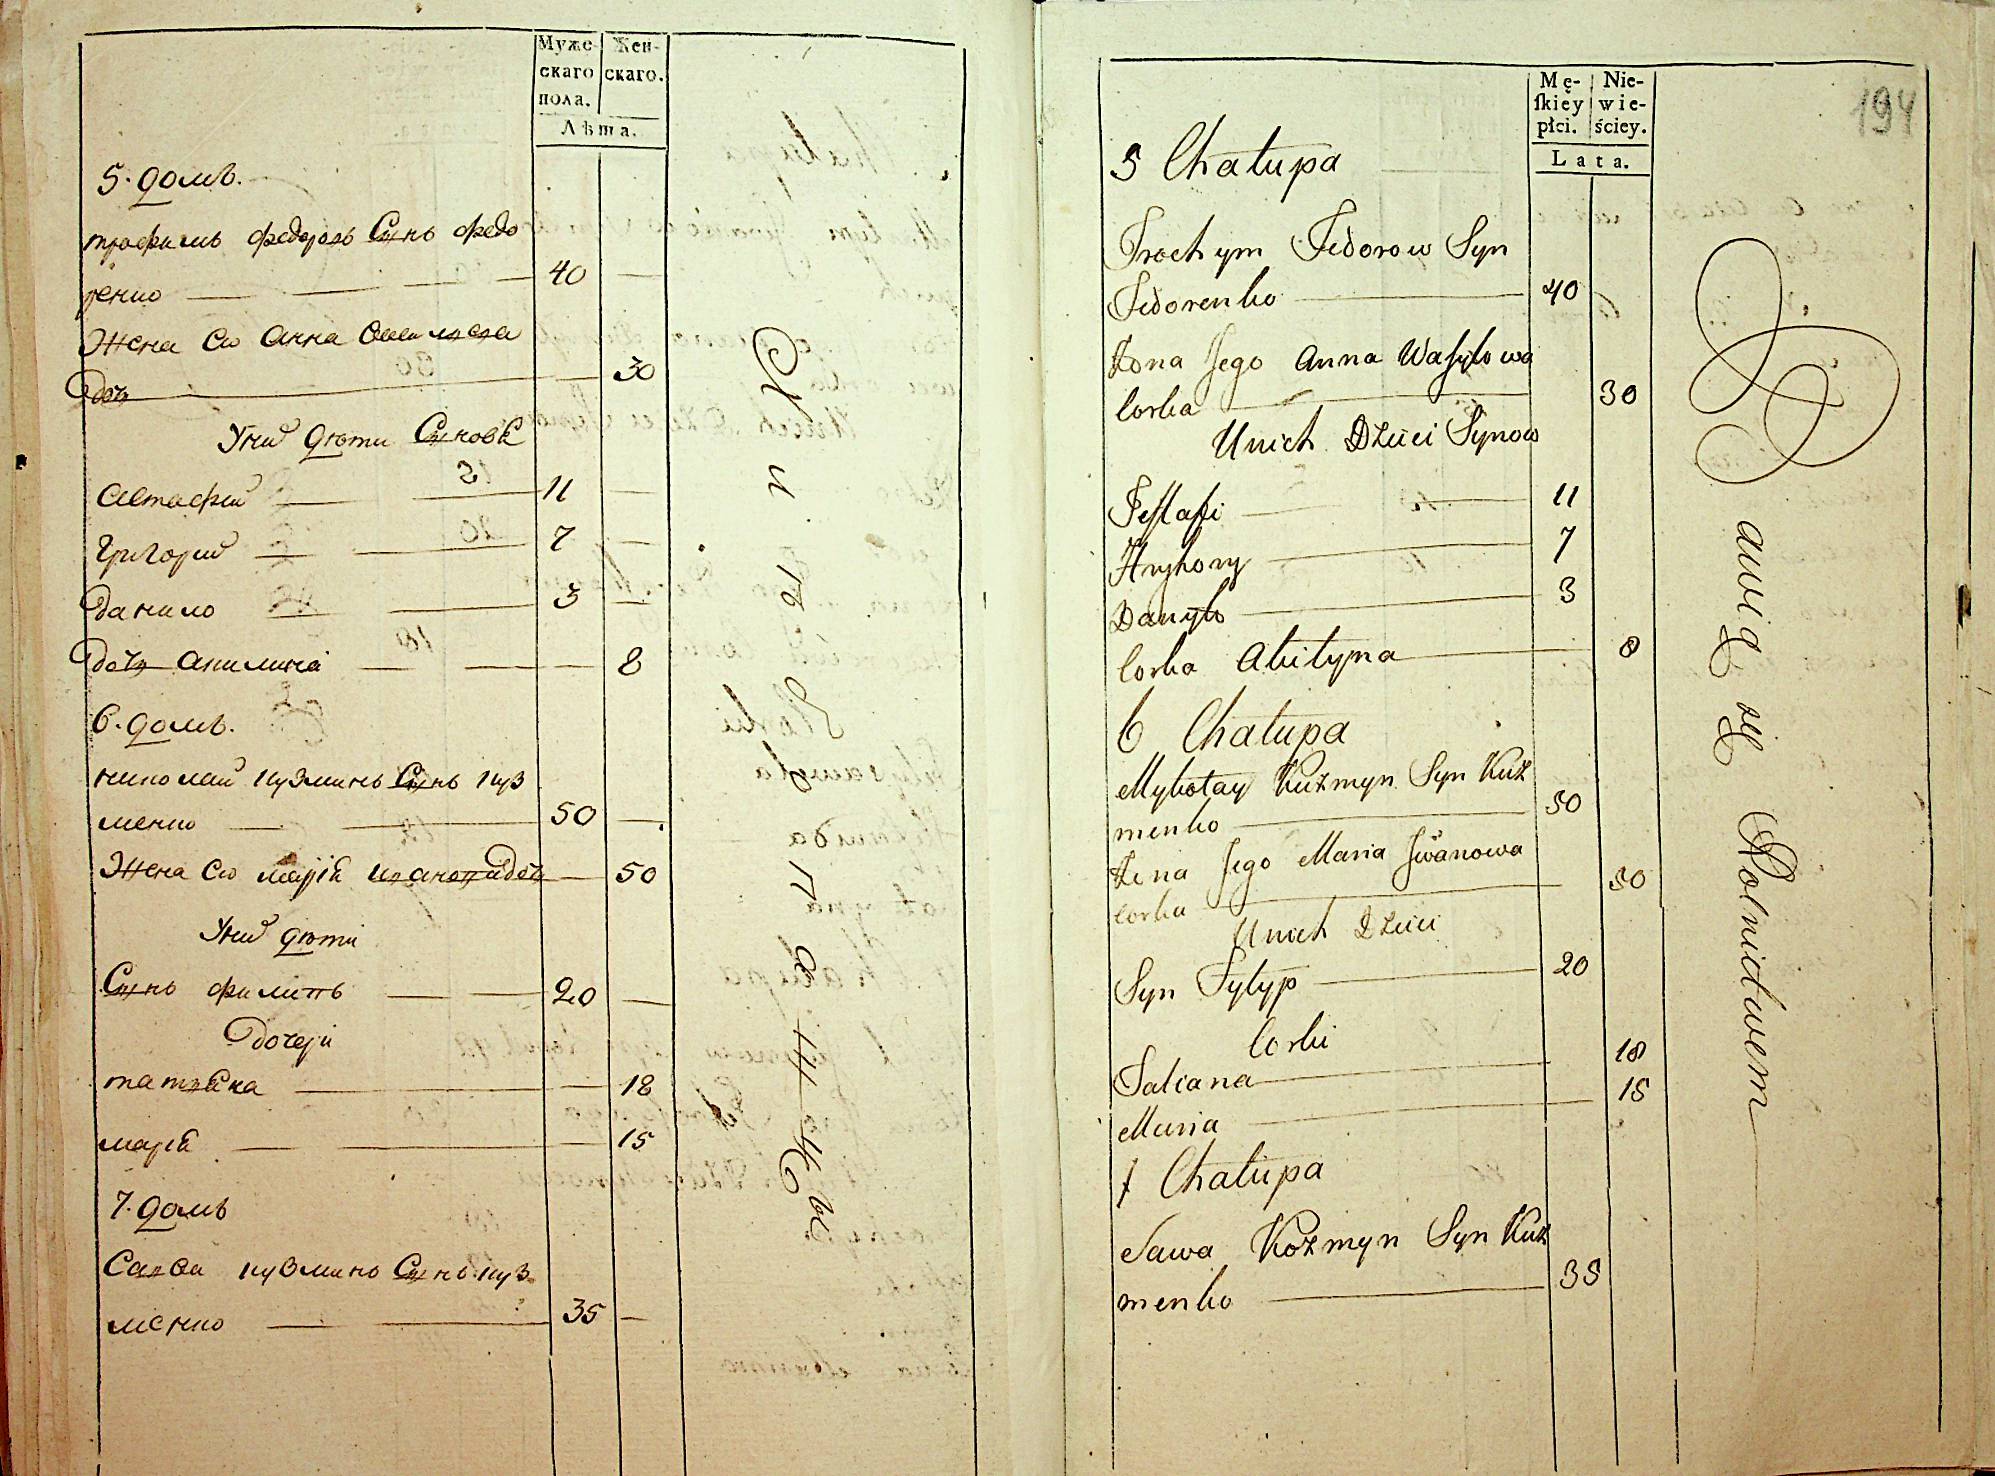 Муже-
скаго
пола.
Жен-
скаго.
Лѣта.
5. домъ.
трофимъ федоровъ Сынъ федо
ренко 40
Жена Ево Анна Василева
дочъ 30
Уних дѣти Синовѣ
Астафий 11
Григорий 7
Данило 3
дочъ Акилина 8
6. домъ.
николай кузминъ Сынъ куз
менко 50
Жена Ево марія Ивановадочъ 50
Уних дѣти
Сынъ филипъ 20
Дочери
татяна 18
марія 15
7. домъ
Савва кузминъ Сынъ куз
менко 35
194
Mę-
ſkiey
płci.
Nie-
wie-
ściey.
Lata.
5 Chałupa
Trochym Fedorow Syn
Fedorenko 40
Żona Jego Anna Wasylowa
Corka 30
Unich Dzieci Synow
Jestafi 11
Hryhory 7
Danyło 3
Corka Akilyna 8
6 Chałupa
Mykołay Kuźmyn Syn Kuź
menko 50
Żona Jego Maria Jwanowa
corka 50
Unich Dzieci
Syn Fylyp 20
Corki
Taliana 18
Maria 15
7 Chałupa
Sawa Koźmyn Syn Kuź
menko 35
awią się Rolnictwem